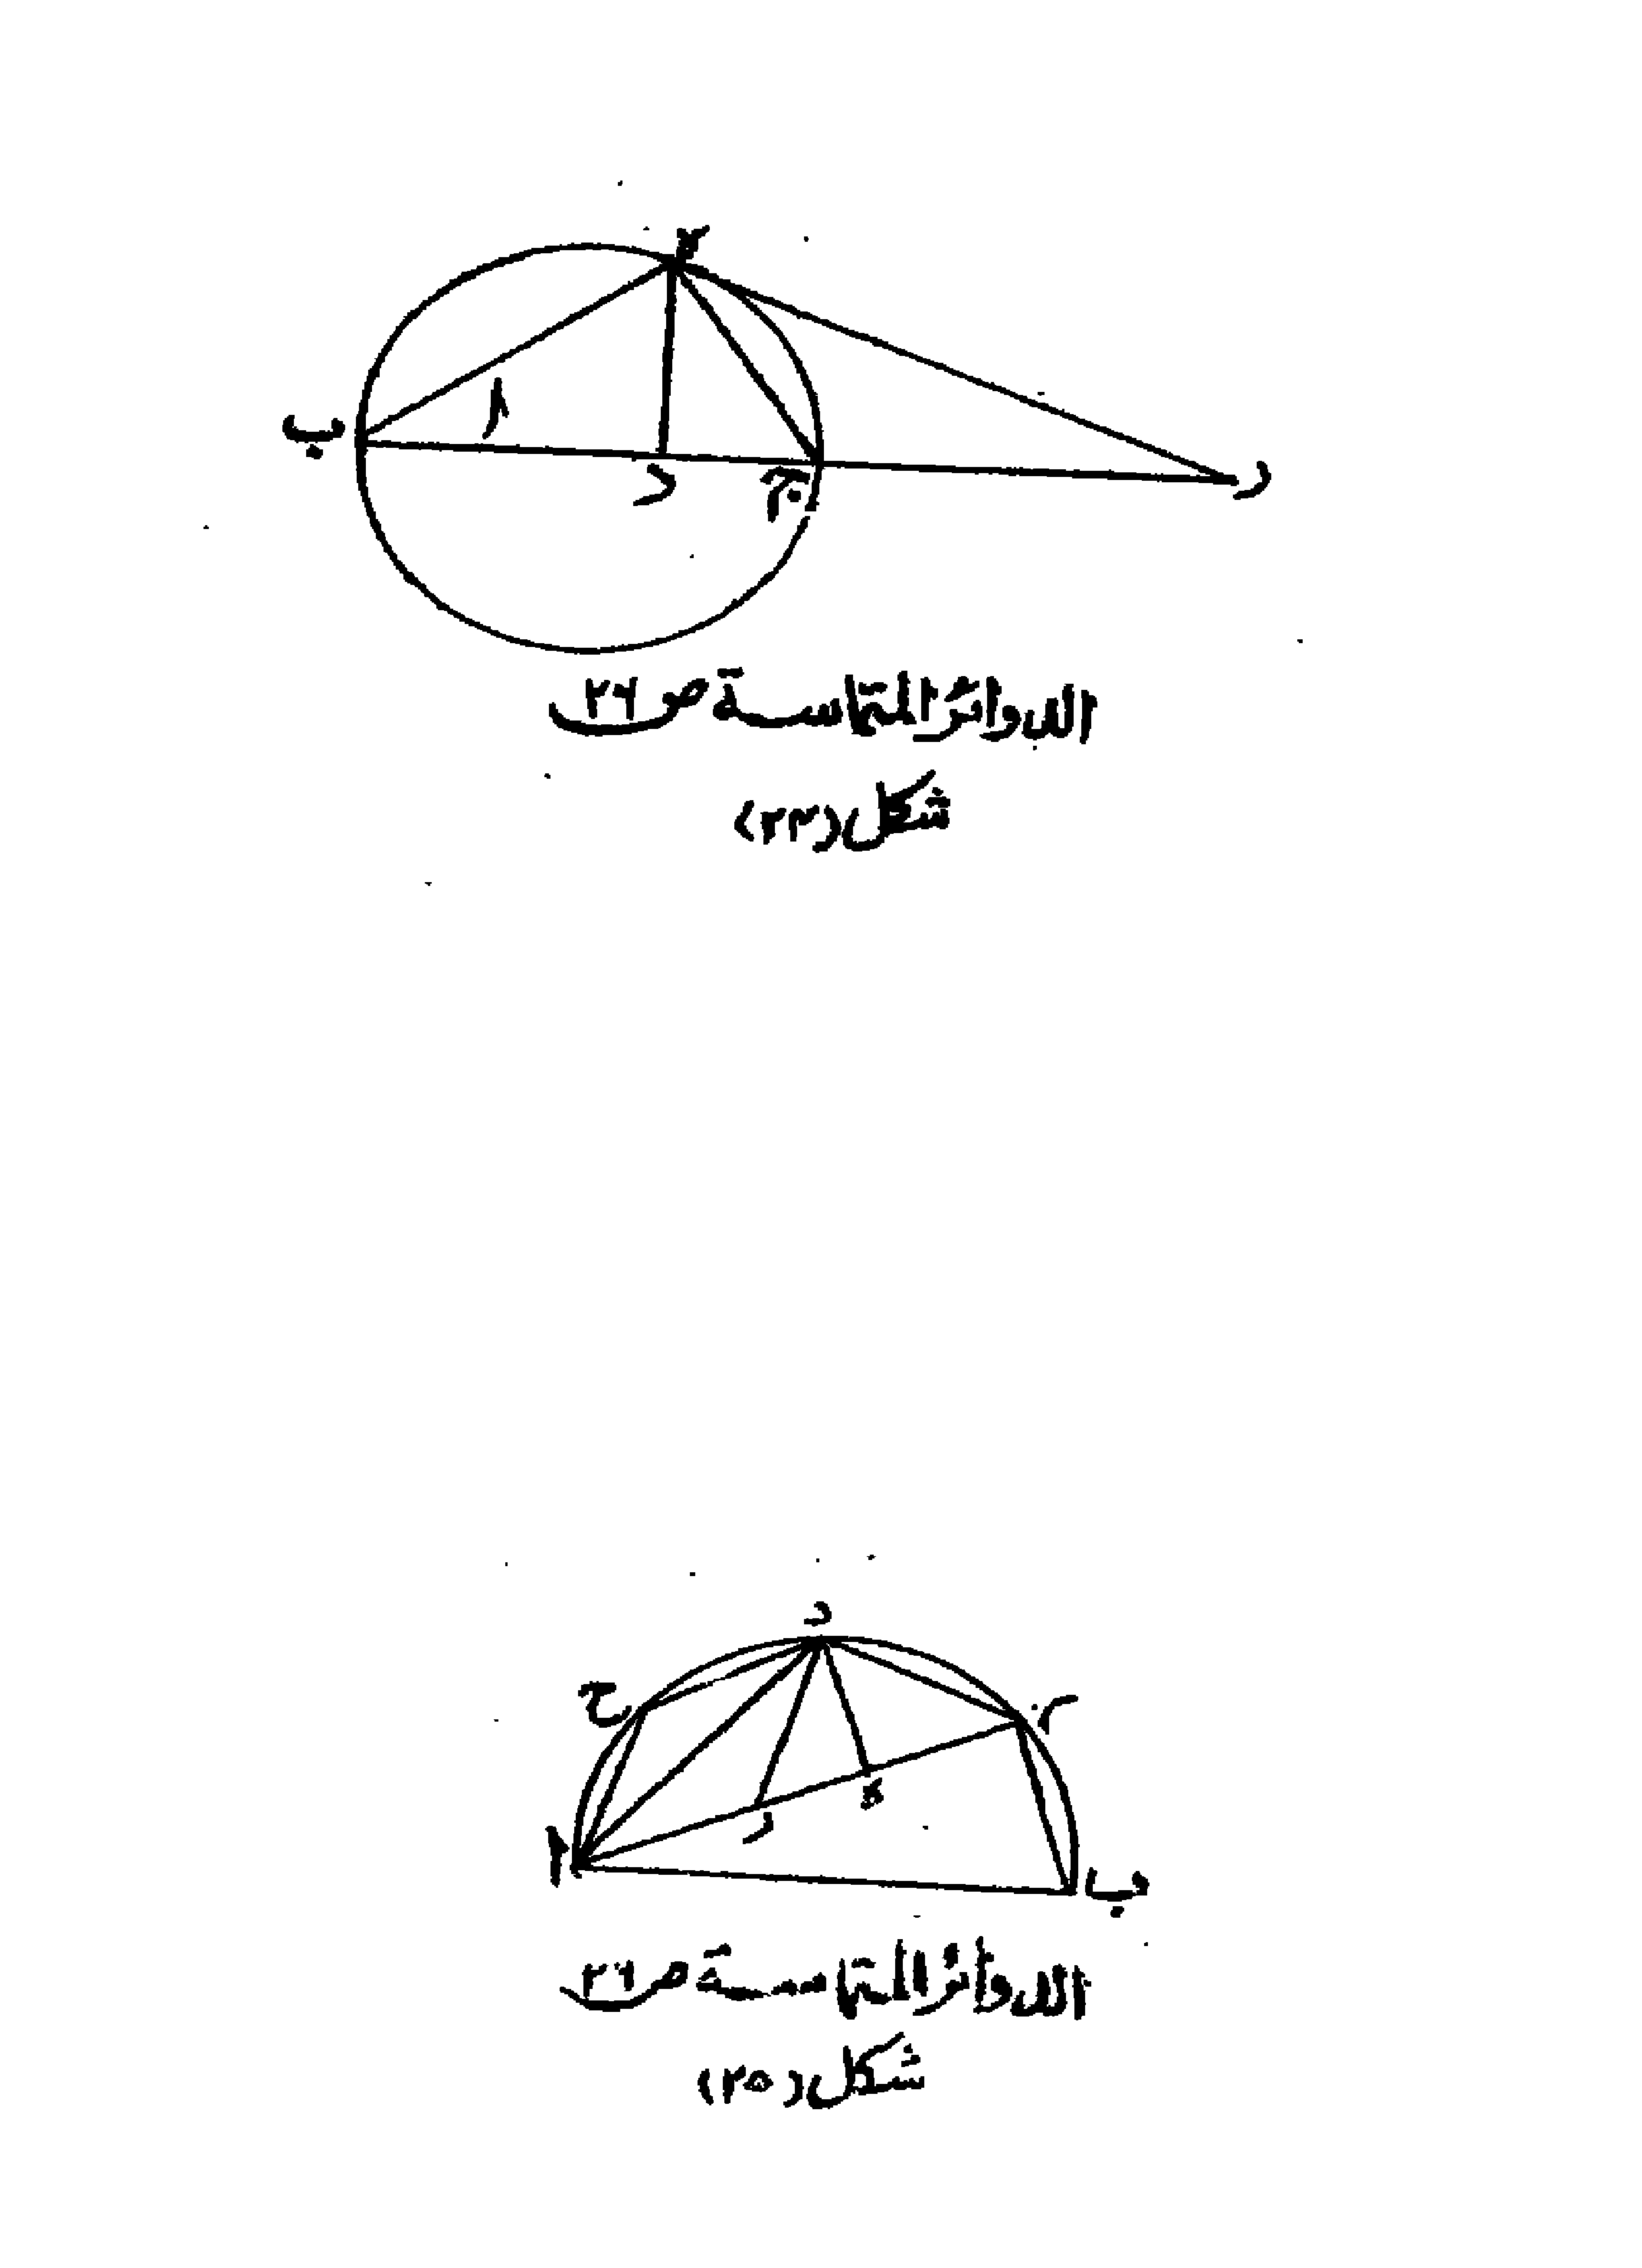 ه
ا
ب
د
ج
ر
الدوائر المتماسة ص ٢٦
شكل (٢٣)
د
ح
ج
ه
ر
ا
ب
الدوائر المتماسة ص ٢٦
شكل (٢٥)